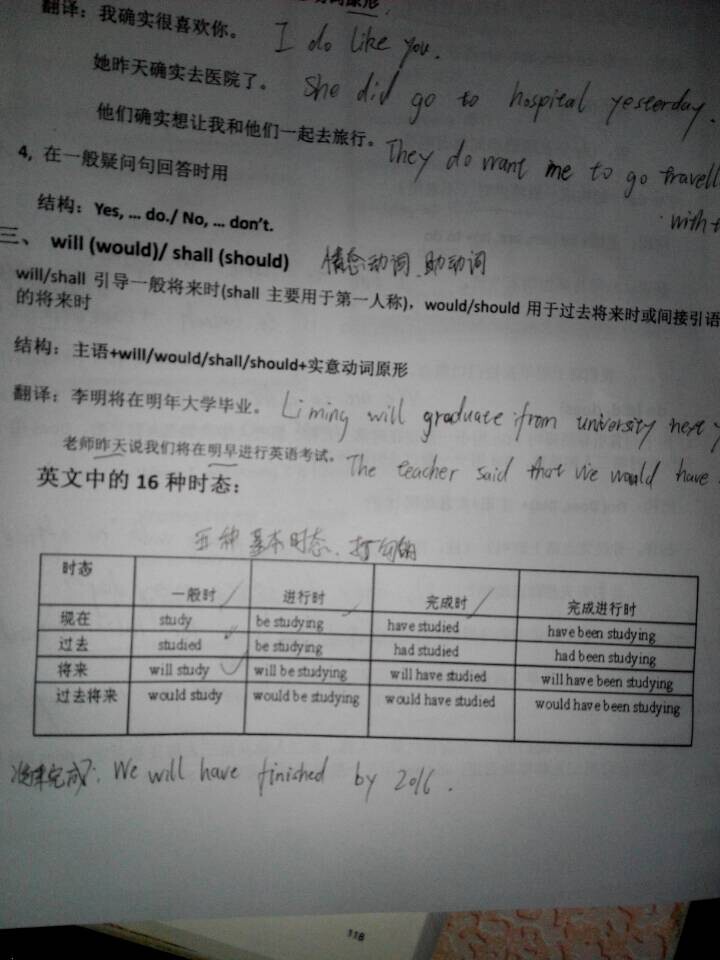 动词原形.
翻译：我确实很喜欢你。 I do like you.
她昨天确实去医院了。 She did go to hospital yesterday.
他们确实想让我和他们一起去旅行。 They do want me to go travell
4, 在一般疑问句回答时用
with
结构：Yes, … do./ No, … don't.
三、 will (would)/ shall (should) 情态动词、助动词
will/shall 引导一般将来时(shall 主要用于第一人称)，would/should 用于过去将来时或间接引语
的将来时
结构：主语+will/would/shall/should+实意动词原形
翻译：李明将在明年大学毕业。 Liming will graduate from university next y
老师昨天说我们将在明早进行英语考试。 The teacher said that we would have
英文中的 16 种时态：
五种基本时态、打勾的
时态 一般时 进行时 完成时 完成进行时
现在 study be studying have studied have been studying
过去 studied be studying had studied had been studying
将来 will study will be studying will have studied will have been studying
过去将来 would study would be studying would have studied would have been studying
将来完成: We will have finished by 2016.
118